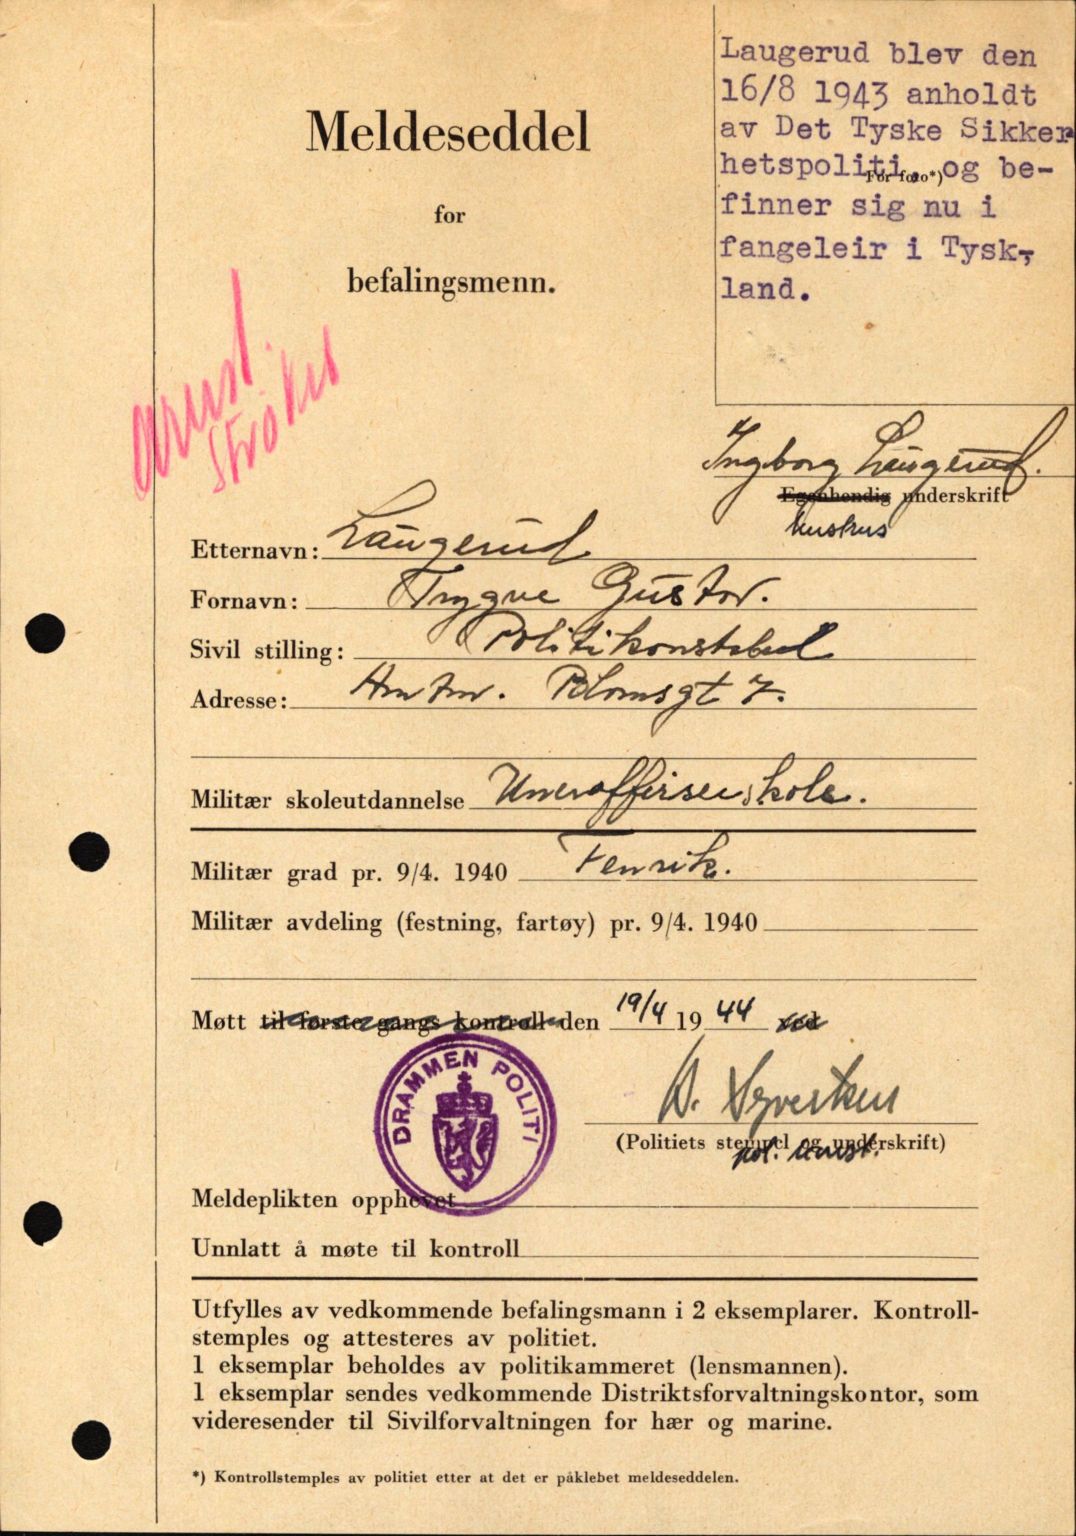 Laugerud blev den
16/8 1943 anholdt
av Det Tyske Sikker
hetspoliti, og be-
For foto*)
finner sig nu i
fangeleir i Tysk-
land.
Meldeseddel
for
befalingsmenn.
arrest.
Strøket
Ingborg Laugerud.
Egenhendig underskrift
hustrus
Etternavn: Laugerud
Fornavn: Trygve Gustav.
Sivil stilling: Politikonstabel
Adresse: Blomsgt 7.
Militær skoleutdannelse Underoffiserskole.
Militær grad pr. 9/4. 1940 Fenrik.
Militær avdeling (festning, fartøy) pr. 9/4. 1940
Møtt til første gangs kontroll den 19/4 1944 ved
DRAMMEN POLITI
(Politiets stempel og underskrift)
Meldeplikten opphevet
Unnlatt å møte til kontroll
Utfylles av vedkommende befalingsmann i 2 eksemplarer. Kontroll-
stemples og attesteres av politiet.
1 eksemplar beholdes av politikammeret (lensmannen).
1 eksemplar sendes vedkommende Distriktsforvaltningskontor, som
videresender til Sivilforvaltningen for hær og marine.
*) Kontrollstemples av politiet etter at det er påklebet meldeseddelen.